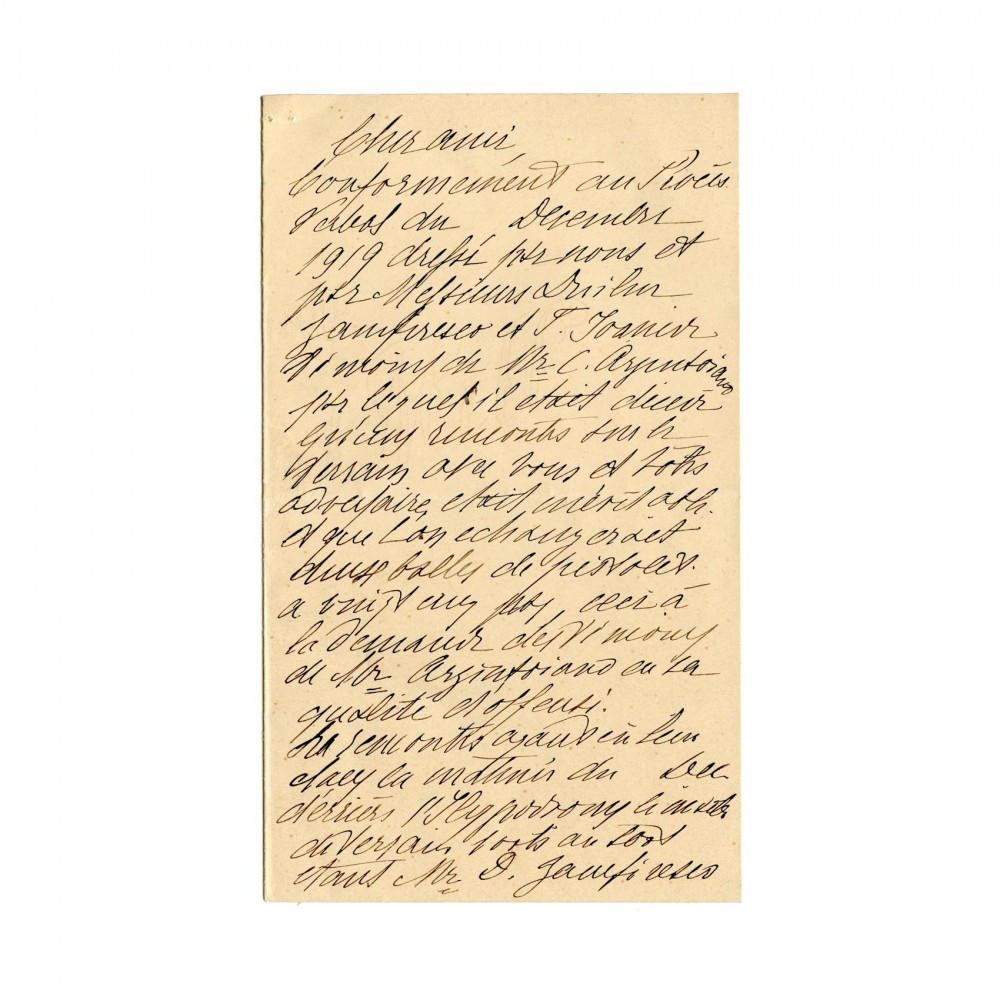 Cher ami,
Conformément au Procès
Verbal du Decembre
1919 dressé par nous et
par Messieurs Duiliu
Zamfiresco et T. Ioanid
témoins de Mr C. Argintoiano
par lequel il était décidé
qu'une rencontre sur le
terrain avec vous et votre
adversaire etait inévitable
et que l'on echangerait
deux balles de pistolet
a vingt cinq pas, ceci à
la demande des témoins
de Mr Argintoiano en sa
qualité d'offensé.
La rencontre ayant eu lieu
la matinée du Dec
derrière l'Hyppodrome
de terrain
etant Mr D. Zamfiresco